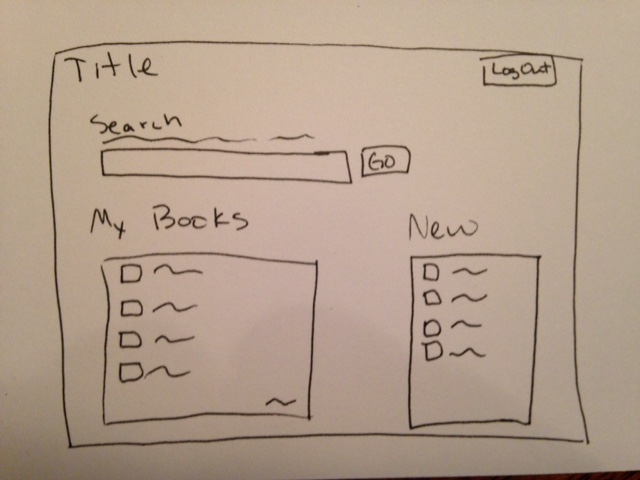 Title
Log Out
Search
Go
My Books
New